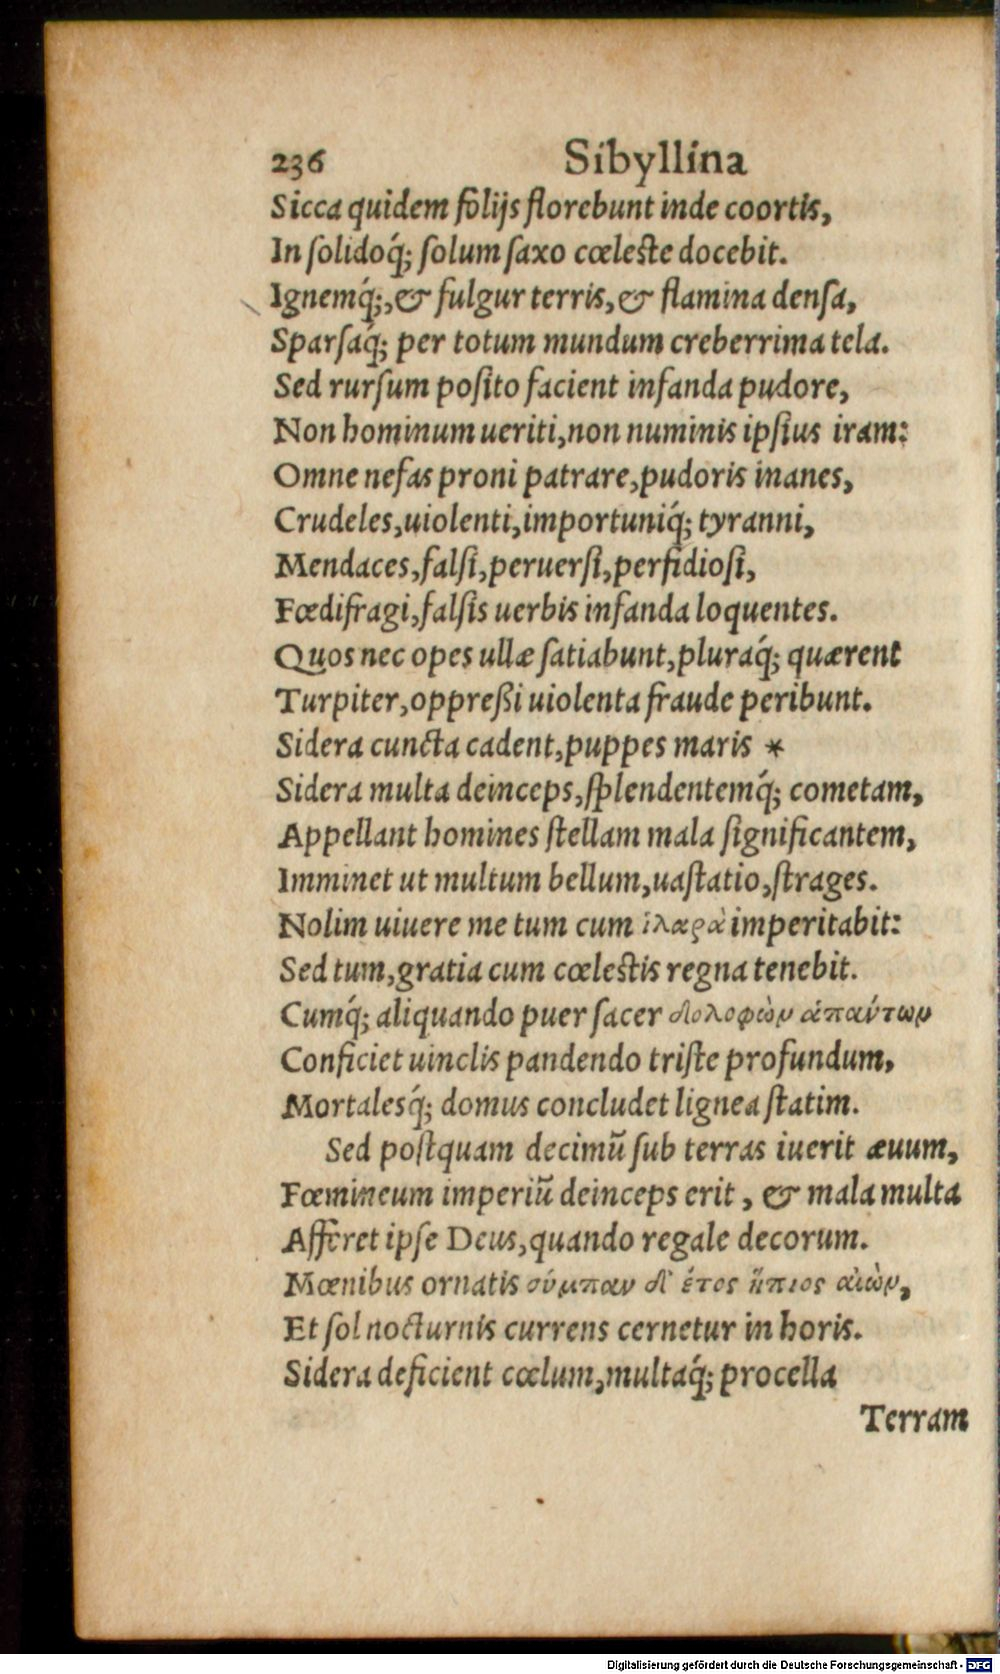 236 Sibyllina
Sicca quidem folijs florebunt inde coortis,
In ſolidoq́; ſolum ſaxo cœleste docebit.
Ignemq́;, & fulgur terris, & flamina denſa,
Sparſaq́; per totum mundum creberrima tela.
Sed rurſum poſito facient infanda pudore,
Non hominum ueriti, non numinis ipſius iram:
Omne nefas proni patrare, pudoris inanes,
Crudeles, uiolenti, importuniq́; tyranni,
Mendaces, falſi, peruerſi, perfidioſi,
Fœdifragi, falſis uerbis infanda loquentes.
Quos nec opes ullæ ſatiabunt, pluraq́; quærent
Turpiter, oppreßi uiolenta fraude peribunt.
Sidera cuncta cadent, puppes maris *
Sidera multa deinceps, ſplendentemq́; cometam,
Appellant homines ſtellam mala ſignificantem,
Imminet ut multum bellum, uaſtatio, ſtrages.
Nolim uiuere me tum cum ἱλαρὰ imperitabit:
Sed tum, gratia cum cœlestis regna tenebit.
Cumq́; aliquando puer ſacer ὀλοφὼν ἁπαύτων
Conficiet uinclis pandendo triſte profundum,
Mortalesq́; domus concludet lignea ſtatim.
Sed poſtquam decimũ ſub terras iuerit æuum,
Fœmineum imperiũ deinceps erit, & mala multa
Afferet ipſe Deus, quando regale decorum.
Mœnibus ornatis σύμπαν δ' ἔτος ἤπιος αἰὼν,
Et ſol nocturnis currens cernetur in horis.
Sidera deficient cœlum, multaq́; procella
Terram
Digitalisierung gefördert durch die Deutsche Forschungsgemeinschaft - DFG